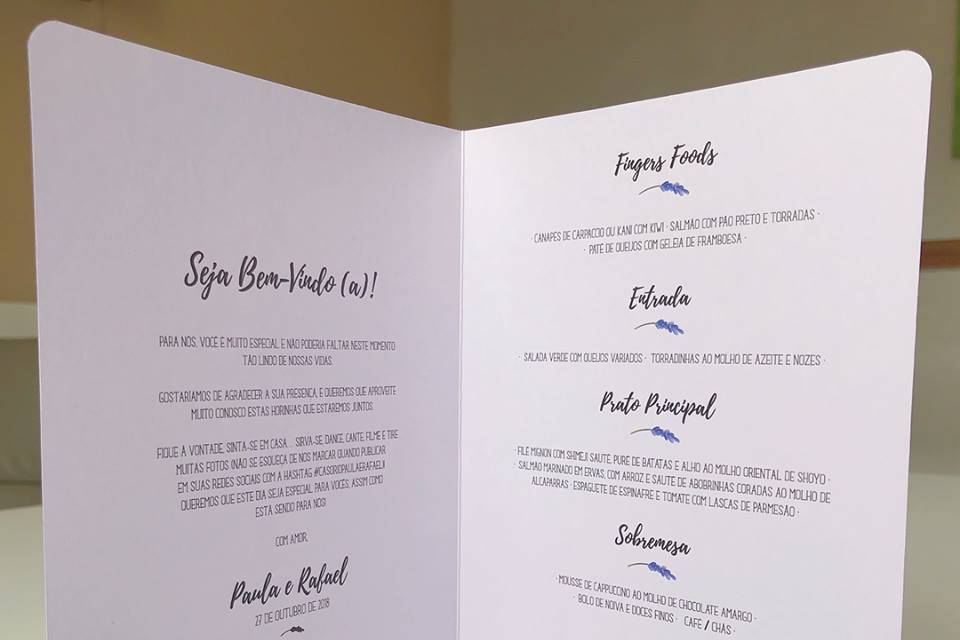 Seja Bem-Vindo (a)!
PARA NÓS, VOCÊ É MUITO ESPECIAL E NÃO PODERIA FALTAR NESTE MOMENTO
TÃO LINDO DE NOSSAS VIDAS.
GOSTARIAMOS DE AGRADECER A SUA PRESENÇA, E QUEREMOS QUE APROVEITE
MUITO CONOSCO ESTAS HORINHAS QUE ESTAREMOS JUNTOS.
FIQUE A VONTADE, SINTA-SE EM CASA ... SIRVA-SE, DANCE, CANTE, FILME E TIRE
MUITAS FOTOS (NÃO SE ESQUEÇA DE NOS MARCAR QUANDO PUBLICAR
EM SUAS REDES SOCIAIS COM A HASHTAG #CASORIOPAULAERAFAEL)!
QUEREMOS QUE ESTE DIA SEJA ESPECIAL PARA VOCÊS, ASSIM COMO
ESTÁ SENDO PARA NÓS!
COM AMOR,
Paula e Rafael
27 DE OUTUBRO DE 2018
Fingers Foods
· CANAPÉS DE CARPACCIO OU KANI COM KIWI · SALMÃO COM PÃO PRETO E TORRADAS ·
· PATÊ DE QUEIJOS COM GELEIA DE FRAMBOESA ·
Entrada
· SALADA VERDE COM QUEIJOS VARIADOS · TORRADINHAS AO MOLHO DE AZEITE E NOZES ·
Prato Principal
· FILÉ MIGNON COM SHIMEJI SAUTÉ, PURÊ DE BATATAS E ALHO AO MOLHO ORIENTAL DE SHOYO ·
· SALMÃO MARINADO EM ERVAS, COM ARROZ E SAUTE DE ABOBRINHAS CORADAS AO MOLHO DE
ALCAPARRAS · ESPAGUETE DE ESPINAFRE E TOMATE COM LASCAS DE PARMESÃO ·
Sobremesa
· MOUSSE DE CAPPUCCINO AO MOLHO DE CHOCOLATE AMARGO ·
· BOLO DE NOIVA E DOCES FINOS · CAFÉ / CHÁS ·